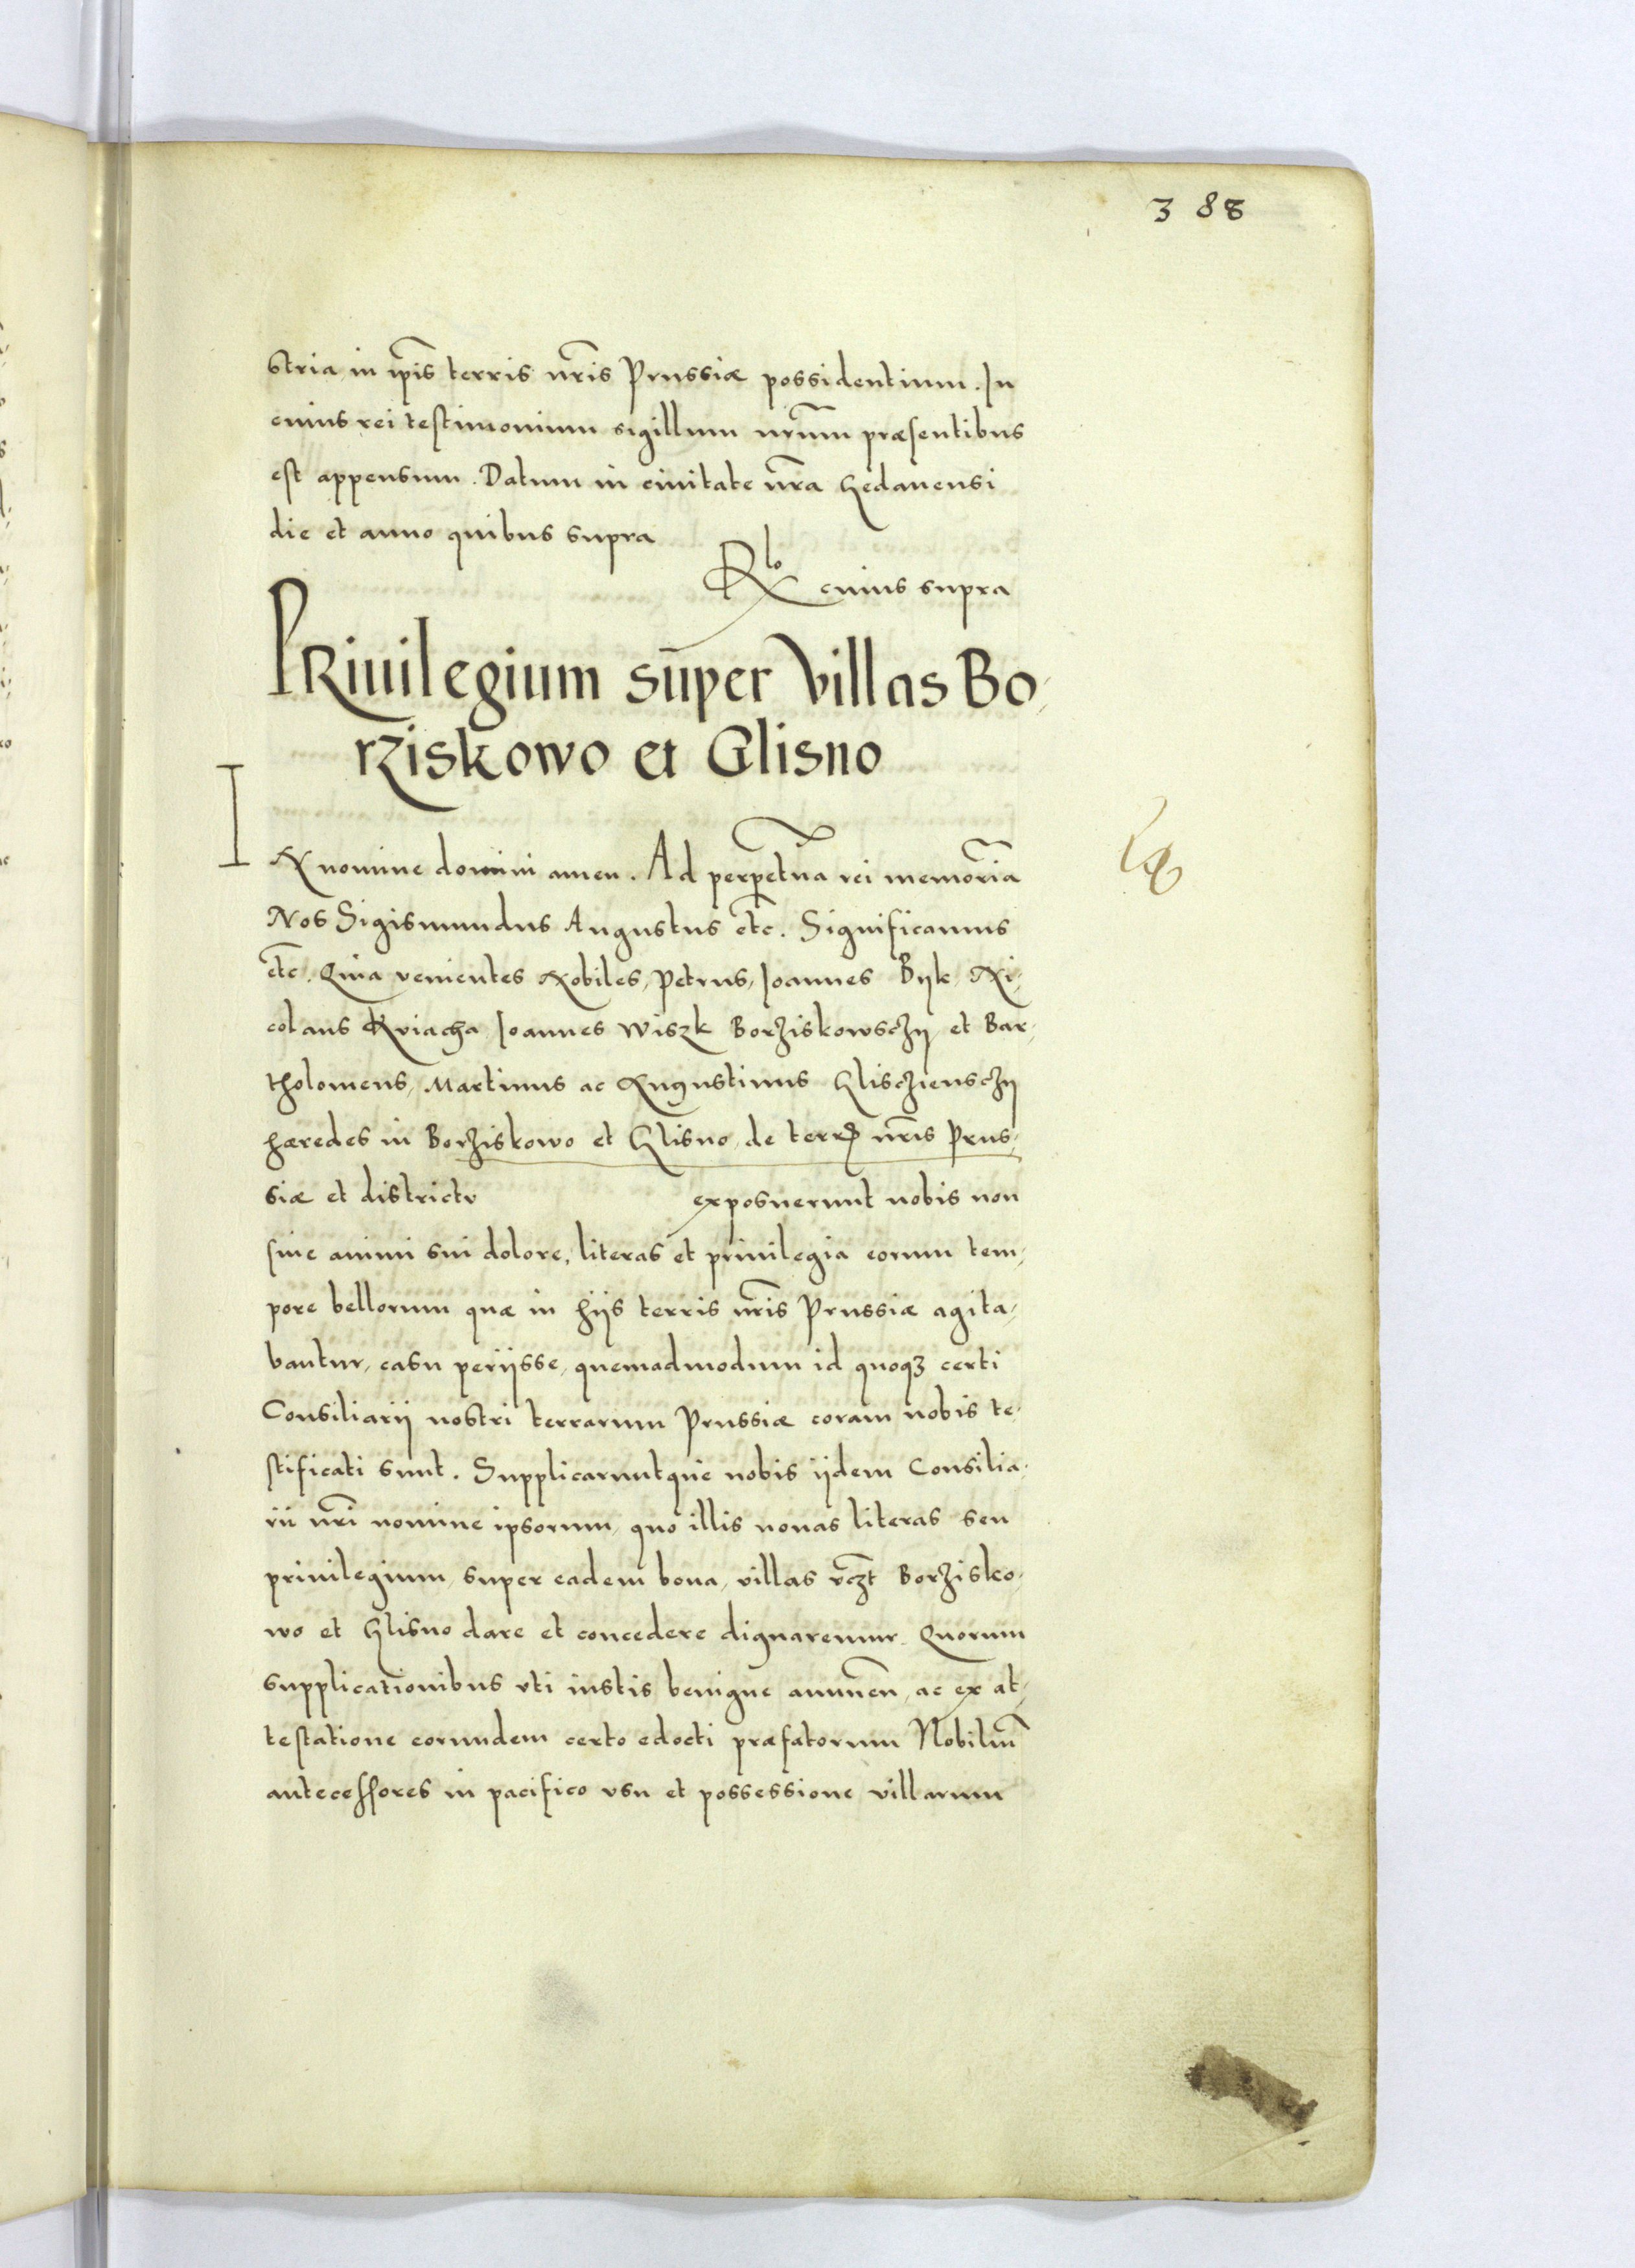 388
stria in ip̄is terris nr̄is Prussiæ possidentium. In
cuius rei testimonium sigillum nr̄um præsentibus
est appensum. Datum in ciuitate nr̄a Gedanensi
die et anno quibus supra
Rlo cuius supra
PRiuilegium super villas Bo,
rziskowo et Glisno
IN nomine domini amen. Ad perpetuā rei memoriā
Nos Sigismundus Augustus etc. Significamus
etc. Quia venientes Nobiles, Petrus, Joannes Byk, Ni,
colaus Kriacha Joannes Wiszk Borziskowsczij et Bar,
tholomeus, Martinus ac Augustinus Gliscziensczij
hæredes in Borziskowo et Glisno, de terris nr̄is Prus,
siæ et districtv exposuerunt nobis non
sine animi sui dolore, literas et priuilegia eorum tem,
pore bellorum quæ in hijs terris nr̄is Prussiæ agita,
bantur, casu perijsse, quemadmodum id quoqꝫ certi
Consiliarij nostri terrarum Prussiæ coram nobis te,
stificati sunt. Supplicaruntque nobis ijdem Consilia,
rii nr̄i nomine ipsorum, quo illis nouas literas seu
priuilegium, super eadem bona, villas vꝫt Borzisko,
wo et Glisno dare et concedere dignaremur. Quorum
supplicationibus vti iustis benigne annueñ, ac ex at,
testatione eorundem certo edocti præfatorum Nobiliū
antecessores in pacifico vsu et possessione villarum